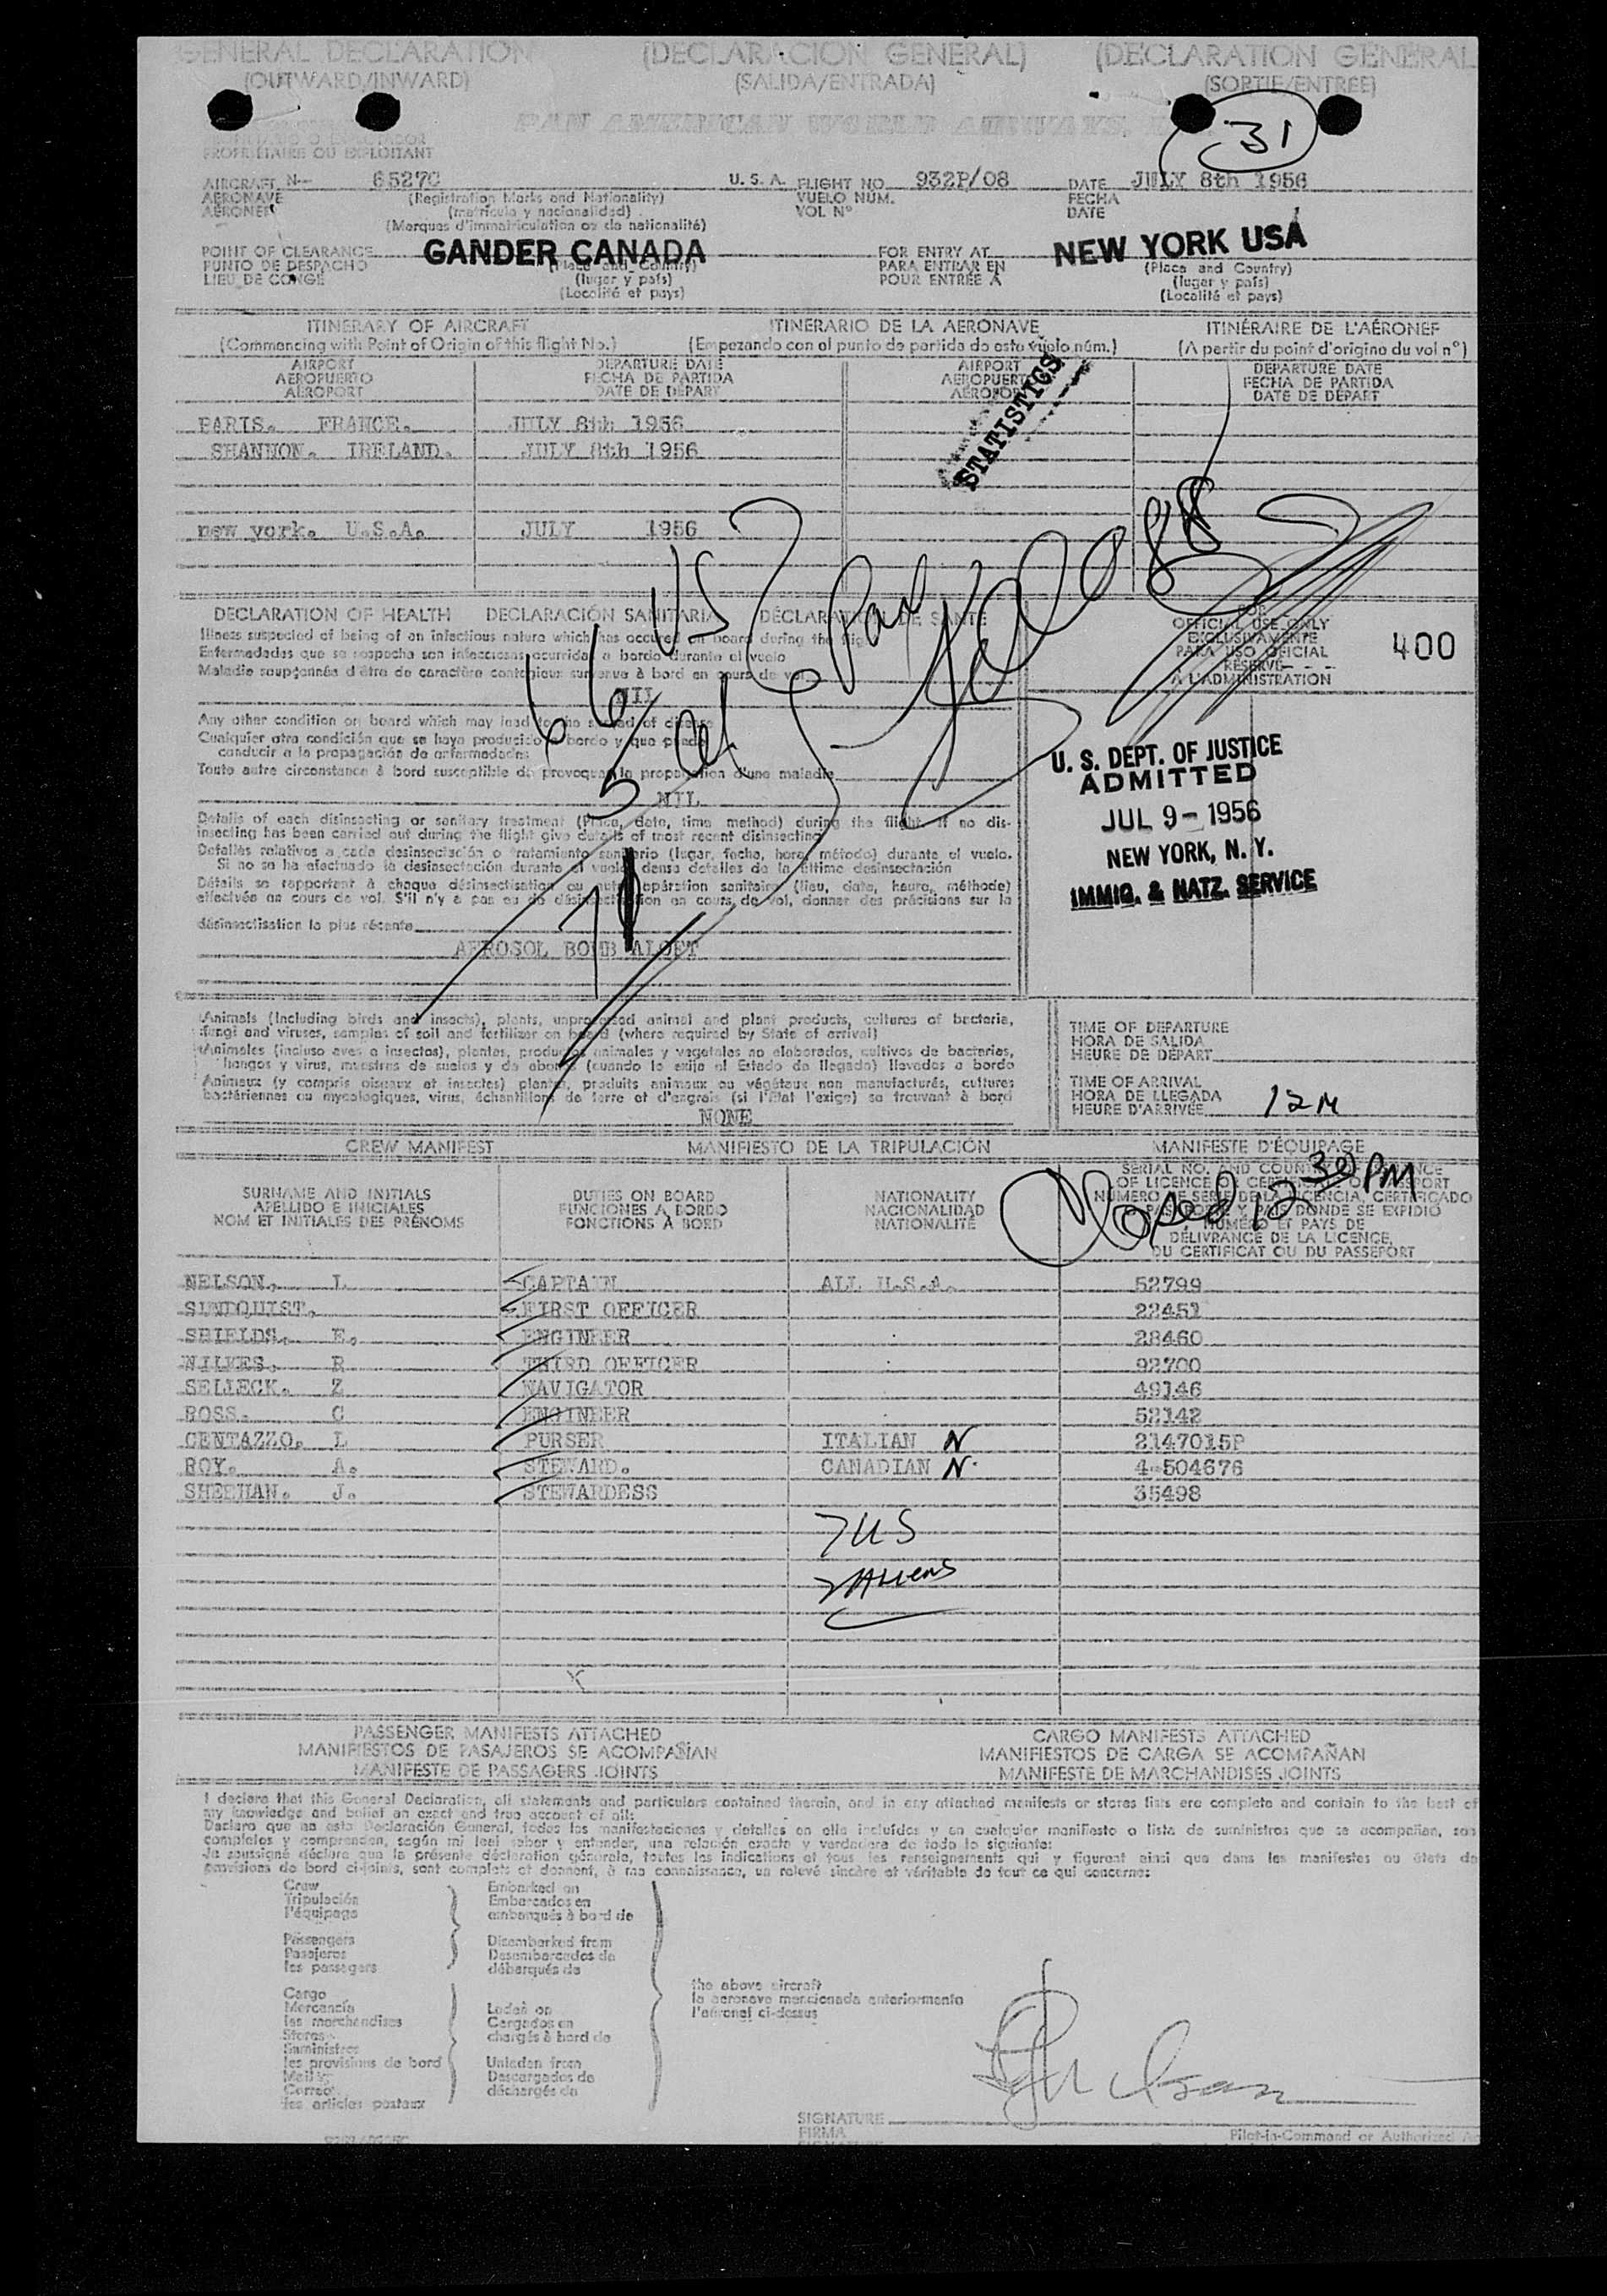 GENERAL DECLARATION (DECLARACION GENERAL) (DECLARATION GENERAL
(OUTWARD/INWARD) (SALIDA/ENTRADA) (SORTIE/ENTREE)
PAN AMERICAN WORLD AIRWAYS,
31
PROPRIÉTAIRE OU EXPLOITANT
AIRCRAFT N- 6527C U. S. A. FLIGHT NO. 932P/08 DATE JULY 8th 1956
AERONAVE (Registration Marks and Nationality) VUELO NÚM. FECHA
AÉRONEF (matrícula y nacionalidad) VOL N° DATE
(Marques d'immatriculation ou de nationalité)
POINT OF CLEARANCE GANDER CANADA FOR ENTRY AT NEW YORK USA
PUNTO DE DESPACHO (Place and Country) PARA ENTRAR EN (Place and Country)
LIEU DE CONGE (lugar y país) POUR ENTRÉE A (lugar y país)
(Localité et pays) (Localité et pays)
ITINERARY OF AIRCRAFT ITINERARIO DE LA AERONAVE ITINÉRAIRE DE L'AÉRONEF
(Commencing with Point of Origin of this flight No.) (Empezando con el punto de partida de este vuelo núm.) (A partir du point d'origine du vol n°)
AIRPORT DEPARTURE DATE AIRPORT DEPARTURE DATE
AEROPUERTO FECHA DE PARTIDA AEROPUERTO FECHA DE PARTIDA
AÉROPORT DATE DE DÉPART AÉROPORT DATE DE DÉPART
STATISTICS
PARIS. FRANCE. JULY 8th 1956
SHANNON. IRELAND. JULY 8th 1956
new york. U.S.A. JULY 1956
66 US
5 al
71
DECLARATION OF HEALTH DECLARACIÓN SANITARIA DÉCLARATION DE SANTÉ
Illness suspected of being of an infectious nature which has occured on board during the flight
Enfermedades que se sospecha son infecciosas ocurridas a bordo durante el vuelo
Maladie soupçonnée d'être de caractère contagieux survenue à bord en cours de vol
NIL
FOR
OFFICIAL USE ONLY
EXCLUSIVAMENTE
PARA USO OFICIAL
RÉSERVÉ
A L'ADMINISTRATION
400
Any other condition on board which may lead to the spread of disease
Cualquier otra condición que se haya producido a bordo y que pueda
conducir a la propagación de enfermedades
Toute autre circonstance à bord susceptible de provoquer la propagation d'une maladie
NIL
U. S. DEPT. OF JUSTICE
ADMITTED
JUL 9 - 1956
NEW YORK, N. Y.
IMMIG. & NATZ. SERVICE
Details of each disinsecting or sanitary treatment (Place, date, time method) during the flight. If no dis-
insecting has been carried out during the flight give details of most recent disinsecting
Detalles relativos a cada desinsectación o tratamiento sanitario (lugar, fecha, hora, método) durante el vuelo.
Si no se ha efectuado la desinsectación durante el vuelo densa detalles de la última desinsectación
Détails se rapportant à chaque désinsectisation ou autre opération sanitaire (lieu, date, heure, méthode)
effectuée au cours de vol. S'il n'y a pas eu de désinsectisation en cours de vol, donner des précisions sur la
désinsectisation la plus récente
AEROSOL BOMB ALOFT
Animals (Including birds and insects), plants, unprocessed animal and plant products, cultures of bacteria,
fungi and viruses, samples of soil and fertilizer on board (where required by State of arrival)
Animales (incluso aves e insectos), plantas, productos animales y vegetales no elaborados, cultivos de bacterias,
hongos y virus, muestras de suelos y de abonos (cuando lo exija el Estado de llegada) llevados a bordo
Animaux (y compris oiseaux et insectes) plantes, produits animaux ou végétaux non manufacturés, cultures
bactériennes ou mycologiques, virus, échantillons de terre et d'engrais (si l'État l'exige) se trouvant à bord
NONE
TIME OF DEPARTURE
HORA DE SALIDA
HEURE DE DÉPART
TIME OF ARRIVAL
HORA DE LLEGADA
HEURE D'ARRIVÉE 12 M
CREW MANIFEST MANIFIESTO DE LA TRIPULACIÓN MANIFESTE D'ÉQUIPAGE
Closed 12 30 PM
SURNAME AND INITIALS DUTIES ON BOARD NATIONALITY
APELLIDO E INICIALES FUNCIONES A BORDO NACIONALIDAD
NOM ET INITIALES DES PRÉNOMS FONCTIONS À BORD NATIONALITÉ
NUMÉRO ET PAYS DE
DÉLIVRANCE DE LA LICENCE,
DU CERTIFICAT OU DU PASSEPORT
NELSON. L CAPTAIN ALL U.S.A. 52799
SUNDQUIST. FIRST OFFICER 22451
SHIELDS. E. ENGINEER 28460
WILKES. R THIRD OFFICER 92700
SELLECK. Z NAVIGATOR 49146
ROSS. C ENGINEER 52142
CENTAZZO. L PURSER ITALIAN N 2147015P
ROY. A. STEWARD. CANADIAN N 4-504676
SHEEHAN. J. STEWARDESS 35498
7 US
2 Aliens
PASSENGER MANIFESTS ATTACHED CARGO MANIFESTS ATTACHED
MANIFIESTOS DE PASAJEROS SE ACOMPAÑAN MANIFIESTOS DE CARGA SE ACOMPAÑAN
MANIFESTE DE PASSAGERS JOINTS MANIFESTE DE MARCHANDISES JOINTS
I declare that this General Declaration, all statements and particulars contained therein, and in any attached manifests or stores lists are complete and contain to the best of
my knowledge and belief an exact and true account of all:
Declaro que en esta Declaración General, todas las manifestaciones y detalles en ella incluídos y en cualquier manifiesto o lista de suministros que se acompañan, son
completos y comprenden, según mi leal saber y entender, una relación exacta y verdadera de todo lo siguiente:
Je soussigné déclare que la présente déclaration générale, toutes les indications et tous les renseignements qui y figurent ainsi que dans les manifestes ou états de
provisions de bord ci-joints, sont complets et donnent, à ma connaissance, un relevé sincère et véritable de tout ce qui concerne:
Crew Embarked on
Tripulación Embarcados en
l'équipage embarqués à bord de
Passengers Disembarked from
Pasajeros Desembarcados de
les passagers débarqués de
the above aircraft
la aeronave mencionada anteriormente
l'aéronef ci-dessus
Cargo
Mercancía Laden on
les marchandises Cargados en
Stores chargés à bord de
Suministros
les provisions de bord Unladen from
Mail Descargados de
Correo déchargés de
les articles postaux
SIGNATURE
FIRMA Pilot-in-Command or Authorized